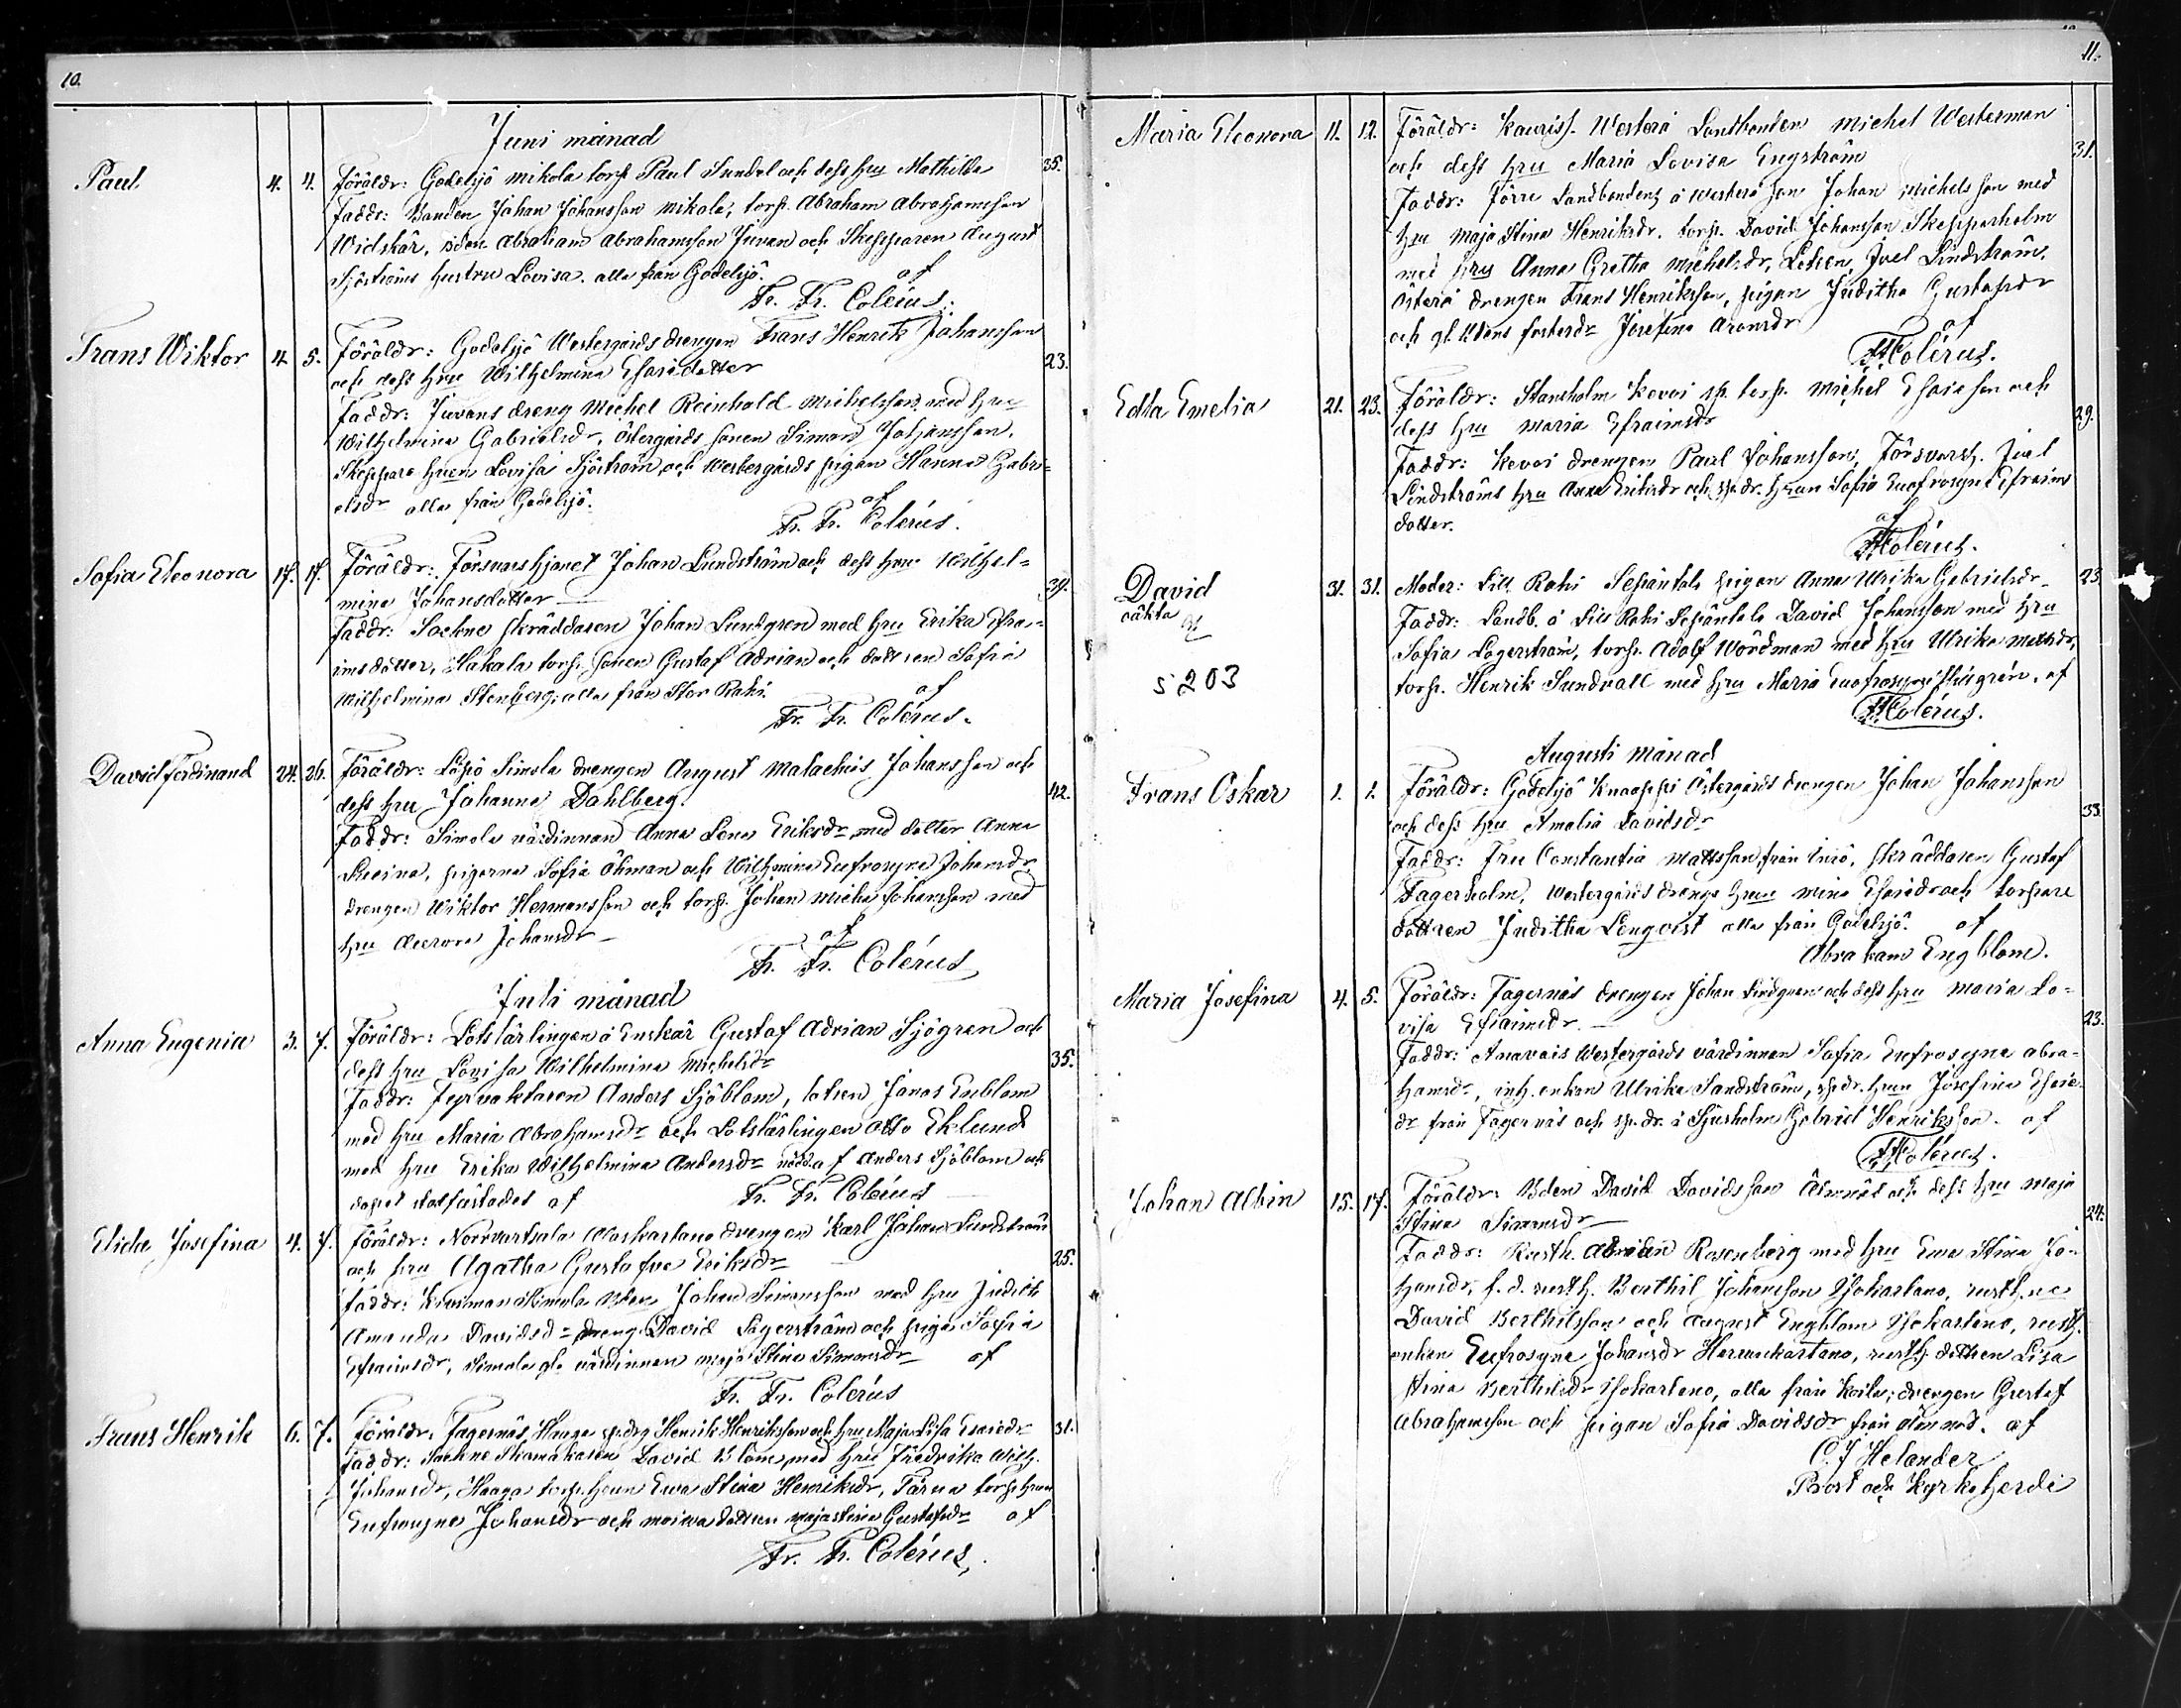 10.
Juni månad
Paul 4. 4. Föräldr: Godelsjö Mikola torp. Paul Sundel och dess hru Mathilda 35.
Faddr: Bonden Johan Johansson Mikola, torp. Abraham Abrahamsson
Widskär, Bden Abraham Abrahamsson Juvan och Skepparen August
Sjöströms hustru Lovisa. alla från Godelsjö. af
Fr. Fr. Colérus.
Frans Wiktor 4. 5. Föräldr: Godelsjö Westergårds drengen Frans Henrik Johansson 23.
och dess hru Wilhelmina Esaidotter
Faddr: Juvans dreng Michel Reinhold Michelsson med hru
Wilhelmina Gabrielsdr, Östergårds sonen Simon Johansson,
Skeppare hrun Lovisa Sjöström, och Westergårds pigan Hanna Gabri-
elsdr alla från Godelsjö. af
Fr. Fr. Colérus.
Sofia Eleonora 17. 17. Föräldr: Försvarshjonet Johan Lundström och dess hru Wilhel= 39.
mina Johansdotter
Faddr: Sockne skräddaren Johan Lundgren med hru Erika Efra-
imsdotter, Sakala torp. sonen Gustaf Adrian och dottren Sofia
Wilhelmina Stenberg; alla från Stor Rahi. af
Fr. Fr. Colérus.
David Ferdinand 24. 26. Föräldr: Löpö Simola drengen August Malachias Johansson och 42.
dess hru Johanna Dahlberg.
Faddr: Simola värdinnan Anna Lena Eriksdr med dotter Anna
pigorna Sofia Öhman och Wilhmina Eufrosyne Johansdr
drengen Wiktor Hermansson och torp. Johan Michel Johansson med
hru Aurora Johansdr af
Fr. Fr. Colérus
Juli månad
Anna Eugenia 3. 7. Föräldr: Lotslärlingen å Enskär Gustaf Adrian Sjögren och 35.
dess hru Lovisa Wilhelmina Michelsdr
Faddr: Fyrvaktaren Anders Sjöblom, lotsen Jonas Enblom
med hru Maria Abrahamsdr och Lotslärlingen Otto Eklund
med hru Erika Wilhelmina Andersdr nödd. af Anders Sjöblom och
dopet stadfästades af Fr. Fr. Colérus
Elida Josefina 4. 7. Föräldr: Norrvartsala Waskartano drengen Karl Johan Lundström 25.
och hru Agatha Gustafva Eriksdr
Faddr: Simola Bden Johan Simonsson med hru Judith
Amanda Davidsdr dreng David Lagerström och piga Sofia
Efraimsdr, Simola gl. värdinnan Maja Stina Simonsdr af
Fr. Fr. Colérus
Frans Henrik 6. 7. Föräldr. Fagernäs Haaga sp.drg Henrik Henriksson och hru Maja Lisa Esaiedr 31.
Faddr: Sockne Skomakaren David Blom, med hru Fredrika Wilh.
Johansdr, Haaga torp. hrun Ewa Stina Henriksdr, torp. hrun
Eufrosyne Johansdr och dottren Maja Stina Gustafsdr af
Fr. Fr. Colérus.
11.
Maria Eleonora 11. 12. Föräldr: Kauriss. Westerö Landbonden Michel Westerman 31.
och dess hru Maria Lovisa Engström
Faddr: Förre Landbondens å Westerö son Johan Michelsson med
hru Maja Stina Henriksdr. torp. David Johansson Skepparholm
med hru Anna Gretha Michelsdr, Lotsen Joel Lindström,
Österö drengen Frans Henriksson, pigan Juditha Gustafsdr
och gl. fosterdr Josefina Aronsdr af
F.F. Colérus.
Edla Emelia 21. 23. Föräldr: Stensholm Kevoi sp. torp. Michel Esaiesson och 29.
dess hru Maria Efraimsdr
Faddr: Kevoi drengen Paul Johansson, Försvarsh. Joel
Lindströms hru Anna Eriksdr och sp.dr. hrun Sofia Eufrosyne Efraims
dotter. af
F.F. Colérus.
David 31. 31. Moder: Lill Rahi Sepäntalo pigan Anna Ulrika Gabrielsdr 23
oäkta Faddr: Landb. å Lill Rahi Sepäntalo David Johansson med hru
Sofia Lagerström, torp. Adolf Nordman med hru Ulrika Mattsdr,
s 203 torp. Henrik Sundvall med hru Maria Eufrosyne af
F.F. Colérus.
Augusti månad
Frans Oskar 1. 1. Föräldr: Godelsjö Knaappi Östergårds drengen Johan Johansson 33.
och dess hru Amalia Davidsdr
Faddr: Fru Constantia Mattsson, från Iniö, skräddaren Gustaf
Fagerholm, Westergårds drengs hrun Mina Esaiedr och torpare
dottren Juditha Lengvist alla från Godelsjö. af
Abraham Engblom.
Maria Josefina 4. 5. Föräldr: Fagernäs drengen Johan Lindgren och dess hru Maria Lo= 23.
visa Efraimsdr.
Faddr: Anavais Westergårds värdinnan Sofia Eufrosyne Abra-
hamsdr, inh. enkan Ulrika Sandström, sp.dr. hrun Josefina Esaie
dr från Fagernäs och sp.dr. å Sjusholm Gabriel Henriksson. af
F.F. Colérus.
Johan Albin 15. 17. Föräldr: Bden David Davidsson Åkernäs och dess hru Maja 24.
Stina Simonsdr
Faddr: Rusth. Adrian Rosenberg med hru Ewa Stina Jo-
hansdr, f.d. rusth. Berthil Johansson Ylikartano, rusth.ne
David Berthilsson och August Engblom Ylikartano, rusth.
enkan Eufrosyne Johansdr Hermukartano, rusth. dottren Lisa
Stina Berthilsdr Ylikartano, alla från Koila; drengen Gustaf
Abrahamsson och pigan Sofia Davidsdr från af
C.J Helander
Prost och Kyrkoherde